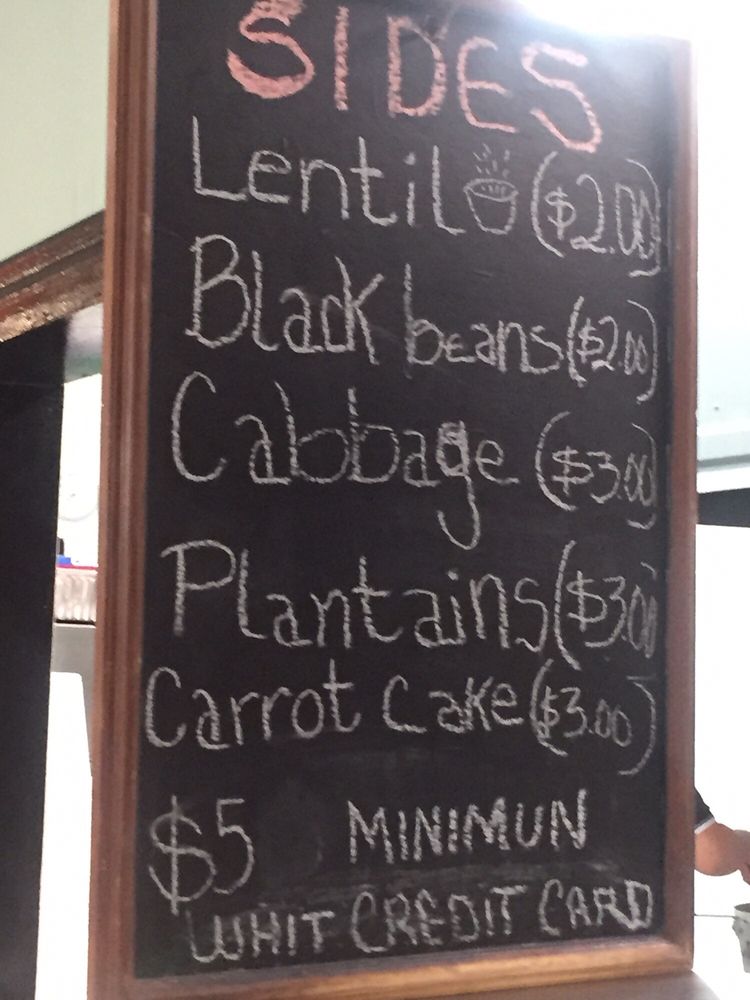 SIDES
Lentil ($2.00)
Black beans ($2.00)
Cabbage ($3.00)
Plantains ($3.00)
Carrot Cake ($3.00)
$5 MINIMUN
WHIT CREDIT CARD